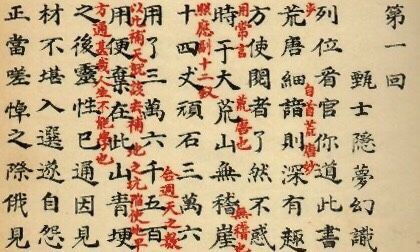 第一回
甄士隱夢幻識
列位看官你道此書
自首荒唐妙
荒唐細諳則深有趣
方使閱者了然不惑
用常言
荒唐也
時于大荒山無稽崖
無稽也
照應副十二釵
十四丈頑石三萬六
合週天之數
用了三萬六千五百
以此補天就該去補地之坑陷使地平
用便棄在此山青埂
之後靈性已通因見
方通甚哉人生不能學也
材不堪入選遂自
正當嗟悼之際俄見